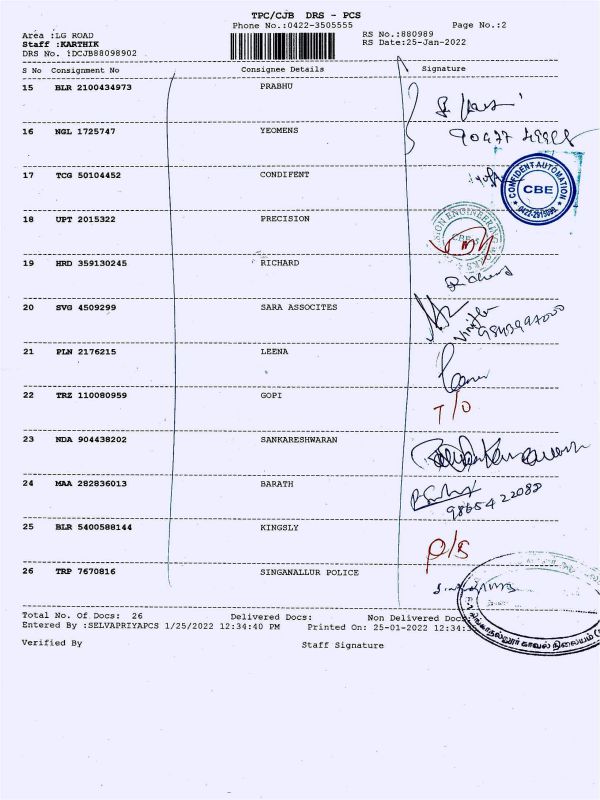 TPC/CJB DRS - PCS
Phone No.:0422-3505555 Page No.:2
Area :LG ROAD RS No.:880989
Staff :KARTHIK RS Date:25-Jan-2022
DRS No. :DCJB88098902
S No Consignment No Consignee Details Signature
15 BLR 2100434973 PRABHU
16 NGL 1725747 YEOMENS
17 TCG 50104452 CONDIFENT
CONFIDENT AUTOMATION
CBE
18 UPT 2015322 PRECISION
19 HRD 359130245 RICHARD
Richard
20 SVG 4509299 SARA ASSOCITES
21 PLN 2176215 LEENA
22 TRZ 110080959 GOPI
T/O
23 NDA 904438202 SANKARESHWARAN
24 MAA 282836013 BARATH
25 BLR 5400588144 KINGSLY
26 TRP 7670816 SINGANALLUR POLICE
Total No. Of Docs: 26 Delivered Docs: Non Delivered Docs
Entered By :SELVAPRIYAPCS 1/25/2022 12:34:40 PM Printed On: 25-01-2022 12:34:
Verified By Staff Signature